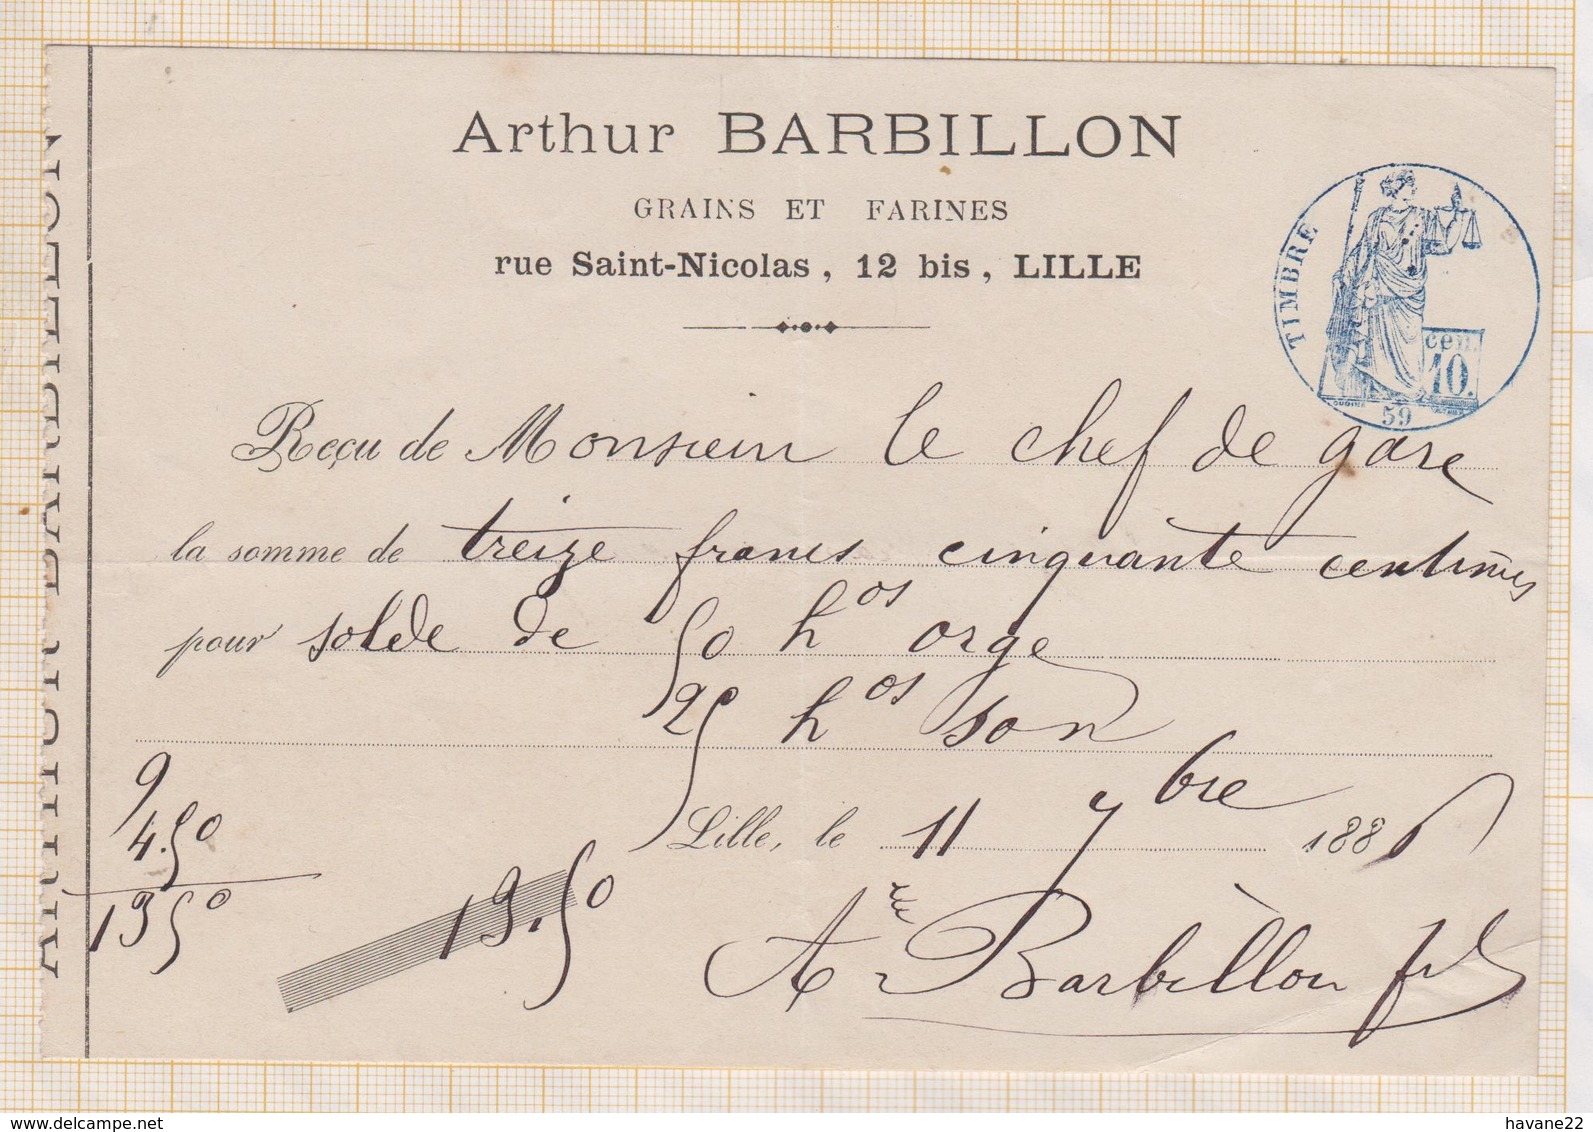 Arthur BARBILLON
GRAINS ET FARINES
rue Saint-Nicolas, 12 bis, LILLE
TIMBRE
cen.
10.
59
Reçu de Monsieur le chef de gare
la somme de treize francs cinquante centimes
pour solde de 50 hos orge
25 hos son
Lille, le 11 7bre 1886
9
4.50
1350
13.50
Are Barbillon fils
ARTHUR BARBILLON
www.delcampe.net
havane22